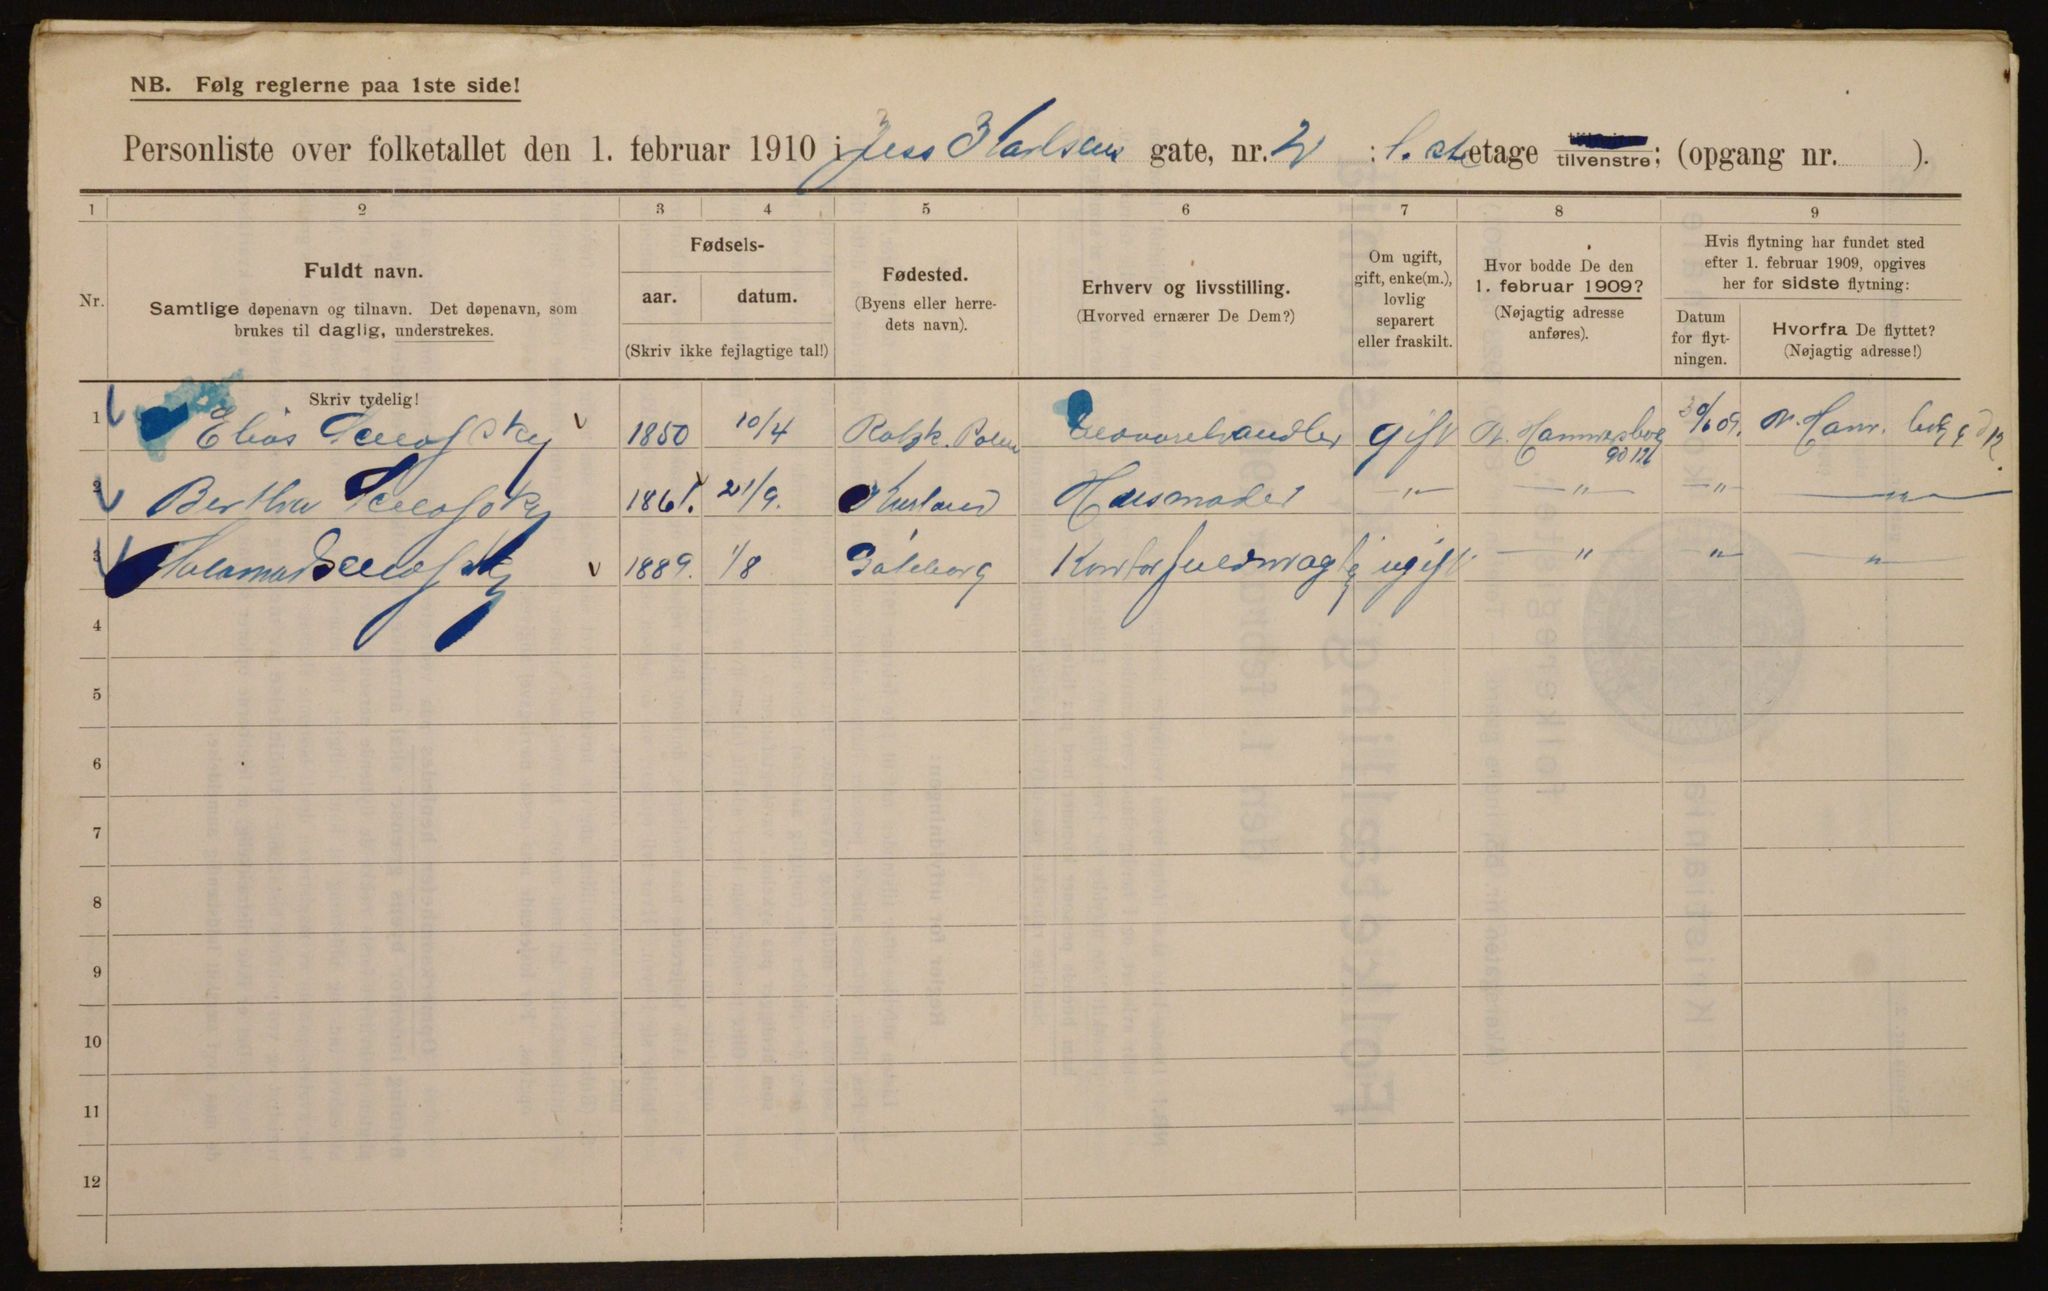 NB. Følg reglerne paa 1ste side!
Personliste over folketallet den 1. februar 1910 i Jess Karlsens gate, nr. 2 : 1. st etage tilvenstre; (opgang nr. ).
1 2 3 4 5 6 7 8 9
Nr.
Fuldt navn.
Samtlige døpenavn og tilnavn. Det døpenavn, som
brukes til daglig, understrekes.
Fødsels-
aar. datum.
(Skriv ikke fejlagtige tal!)
Fødested.
(Byens eller herre-
dets navn).
Erhverv og livsstilling.
(Hvorved ernærer De Dem?)
Om ugift,
gift, enke(m.),
lovlig
separert
eller fraskilt.
Hvor bodde De den
1. februar 1909?
(Nøjagtig adresse
anføres).
Hvis flytning har fundet sted
efter 1. februar 1909, opgives
her for sidste flytning:
Datum
for flyt-
ningen.
Hvorfra De flyttet?
(Nøjagtig adresse!)
Skriv tydelig!
1 Elias 1850 10/4 Polen gift N. Hammersborg 30/6 09. N. Ham.
gd 12b
2 Bertha 1861. 21/9. Kurland Husmoder — " — — " — — " — — " —
3 1889. 1/8 Gøteborg Kontorfuldmægtig ugift — " — " — — " —
4
5
6
7
8
9
10
11
12